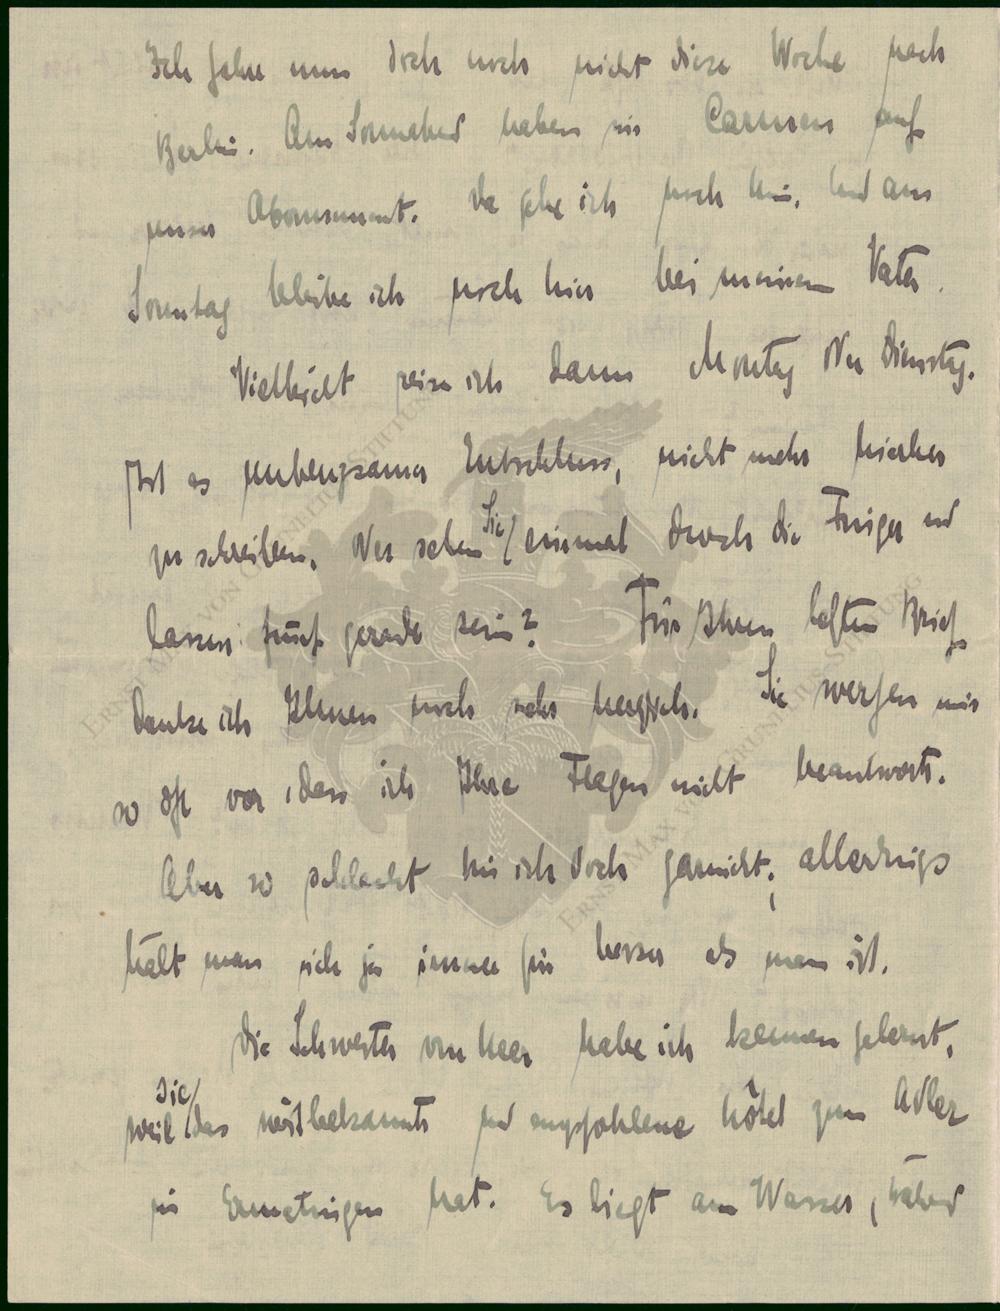 Ich fahre nun doch noch nicht diese Woche nach
Berlin. Am Sonnabend haben wir Carmen auf
unser Abonnement. Da gehe ich noch hin. Und am
Sonntag bleibe ich noch hier bei meinem Vater.
Vielleicht reise ich dann Montag oder Dienstag.
Ist es unbeugsamer Entschluss, nicht mehr hierher
zu schreiben. Oder sehen Sie/ einmal durch die Finger und
lassen fünf gerade sein? Für Ihren letzten Brief
danke ich Ihnen noch sehr herzlich. Sie werfen mir
so oft vor, dass ich Ihre Fragen nicht beantworte.
Aber so schlecht bin ich doch garnicht; allerdings
hält man sich ja immer für besser als man ist.
Die Schwester von Heer habe ich kennen gelernt,
weil sie/ das weitbekannte und empfohlene Hôtel zum Adler
in Ermatingen hat. Es liegt am Wasser,
ERNST MAX VON GRUNELIUS-STIFTUNG
ERNST MAX VON GRUNELIUS-STIFTUNG